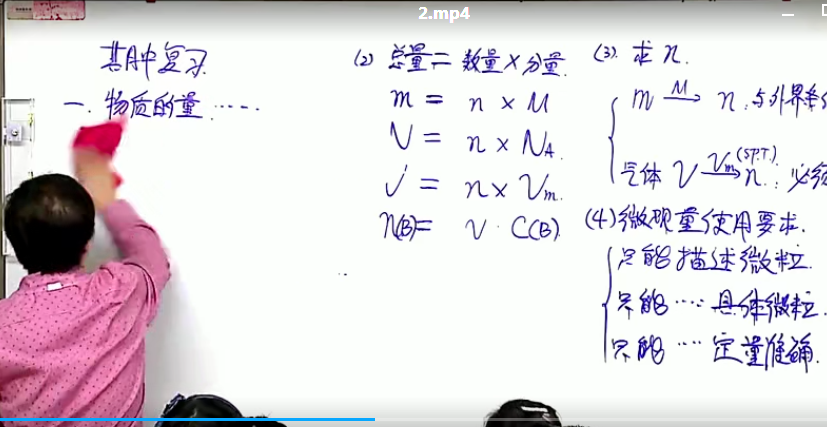 2.mp4
其中复习
一. 物质的量……
(2) 总量 = 数量 × 分量.
m = n × M
N = n × NA.
V = n × Vm.
n(B) = V · C(B)
(3). 求 n.
m —M→ n. 与外界条
气体 V —Vm(S.P.T.)→ n.: 必须
(4) 微观量使用要求.
只能描述微粒.
只能……具体微粒.
只能……定量准确.